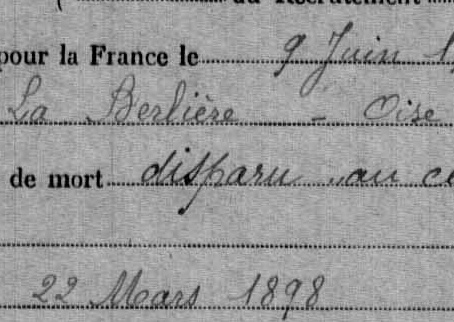 au Recrutement
pour la France le 9 Juin 1
La Berlière - Oise
de mort disparu au c
22 Mars 1898